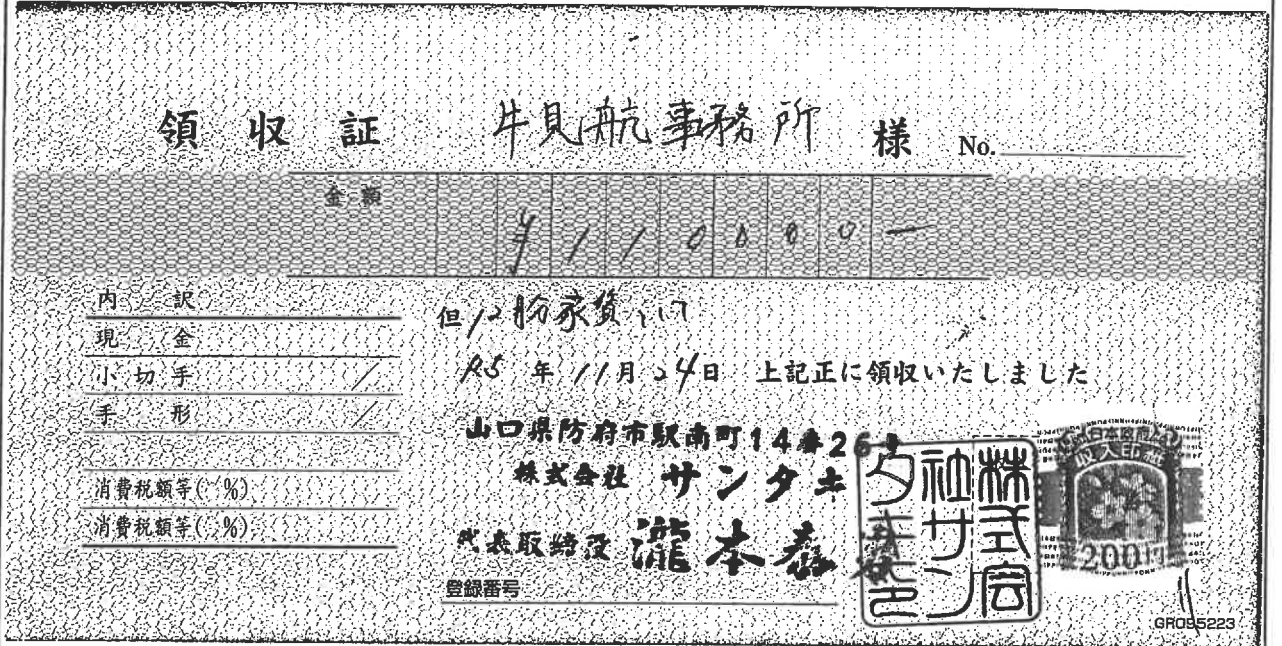 領収証 牛見航事務所 様 No.
金額 ¥110000―
内訳
現金
小切手
手形
消費税額等( %)
消費税額等( %)
但12月分家賃
R5年11月24日 上記正に領収いたしました
山口県防府市駅南町14番26号
株式会社 サンタキ
代表取締役 瀧本
登録番号
株式会社サンタキ
日本政府
収入印紙
200円
GR095223